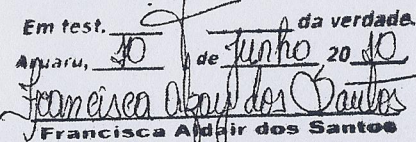 Em test. da verdade.
Apuaru, 30 de Junho 20 10
Francisca Aldair dos Santos
Francisca Aldair dos Santos